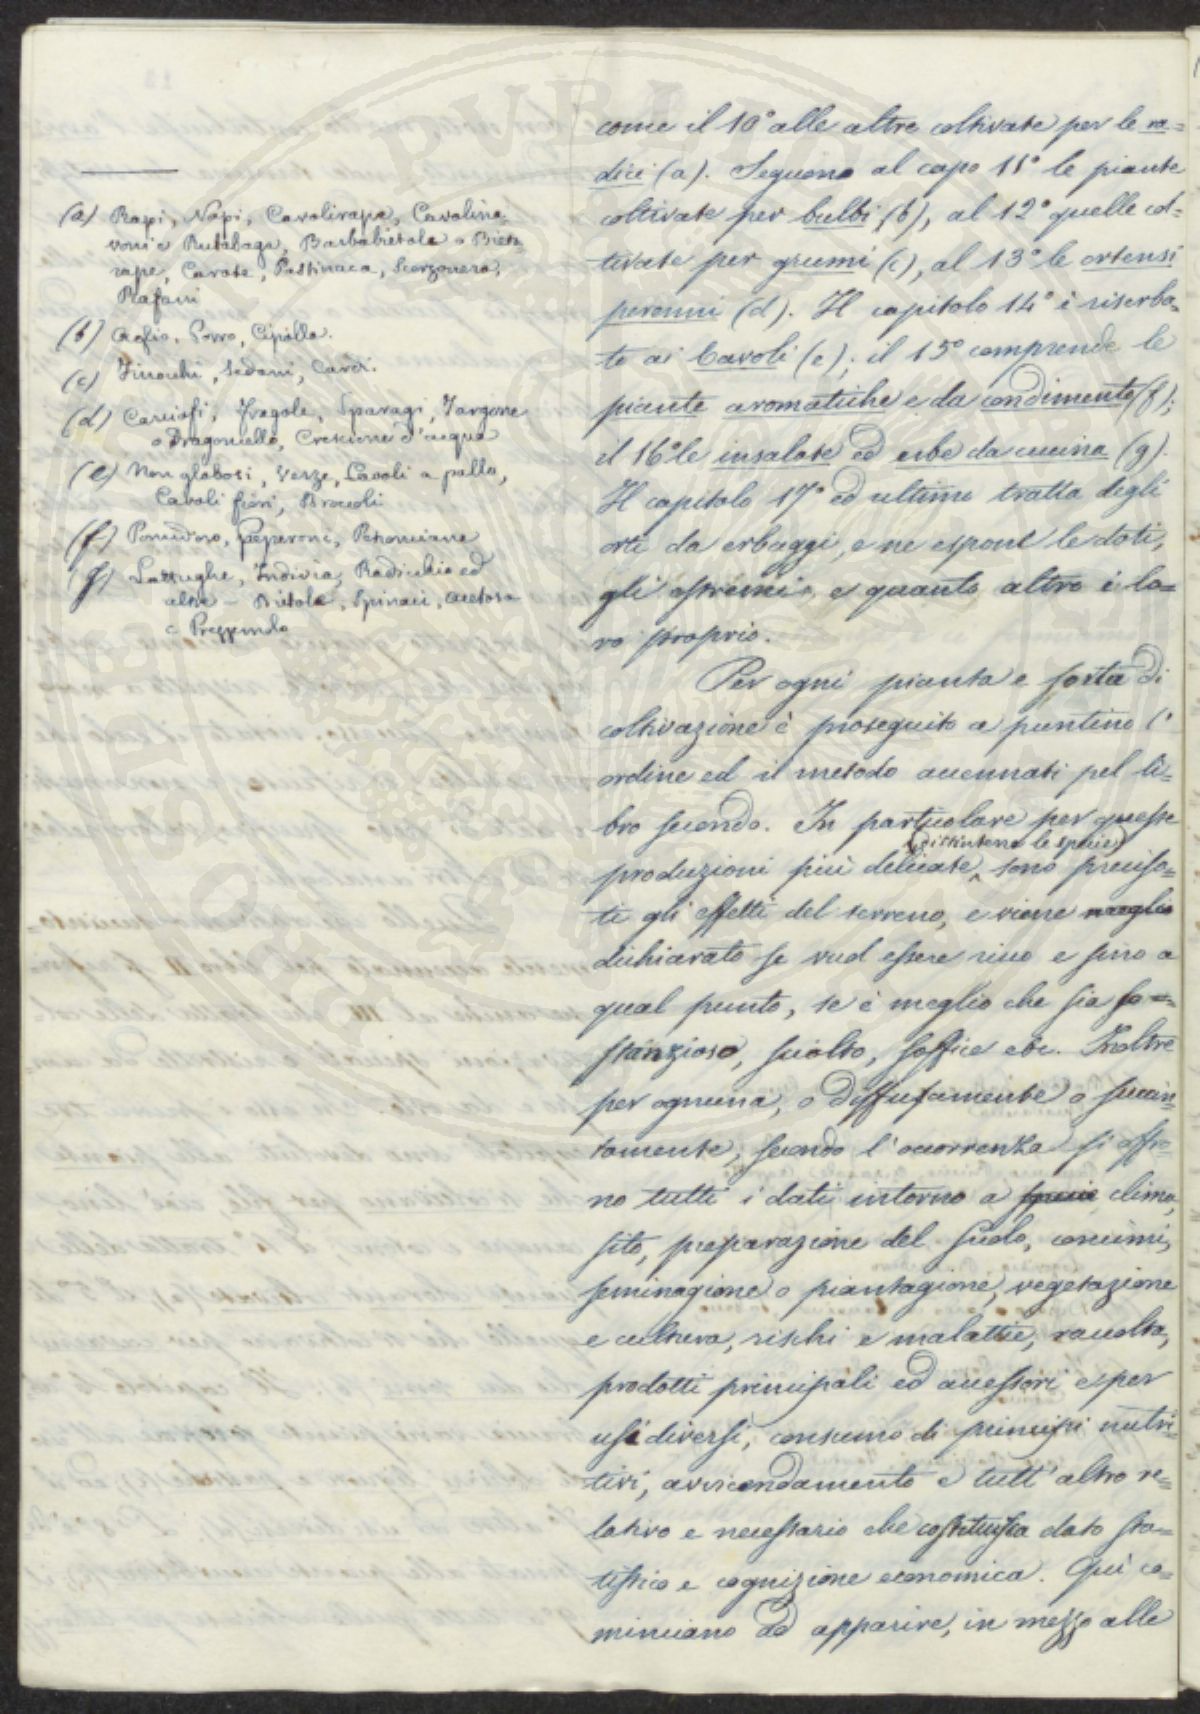 (a) Rapi, Napi, Cavolirapa, Cavolina-
voni e Rutabaga, Barbabietola o Biet-
rape, Carote, Pastinaca, Scorzonera,
Rafani
(b) Aglio, Porro, Cipolla.
(c) Finocchi, Sedani, Cardi.
(d) Carciofi, Fragole, Sparagi, Targone
o Dragoncello, Crescione d'acqua
(e) Non globosi, Verze, Cavoli a palla,
Cavoli fiori, Broccoli
(f) Pomidoro, Peperoni, Petonciane
(g) Lattughe, Indivia, Radicchio ed
altre - Bietola, Spinaci, Acetosa
e Prezzemolo
come il 10° alle altre coltivate per le ra=
dici (a). Seguono al capo 11° le piante
coltivate per bulbi (b), al 12° quelle col-
tivate per grumi (c), al 13° le ortensi
perenni (d). Il capitolo 14° è riserba-
to ai Cavoli (e); il 15° comprende le
piante aromatiche e da condimento (f);
il 16° le insalate ed erbe da cucina (g).
Il capitolo 17° ed ultimo tratta degli
orti da erbaggi, e ne espone le doti,
gli estremi, e quanto altro è lo=
ro proprio.
Per ogni pianta e sorta di
coltivazione è proseguito a puntino l'
ordine ed il metodo accennati pel li=
bro secondo. In particolare per queste
(distintene le specie)
produzioni più delicate, sono precisa=
ti gli effetti del terreno, e viene meglio
dichiarato se vuol essere ricco e sino a
qual punto, se è meglio che sia so=
stanzioso, sciolto, soffice etc. Inoltre
per ognuna, o diffusamente o succin
tamente, secondo l'occorrenza si offro=
no tutti i dati intorno a specie clima,
sito, preparazione del suolo, concimi,
seminagione o piantagione, vegetazione
e cultura, rischi e malattie, raccolta,
prodotti principali ed accessori e per
usi diversi, consumo di principi nutri=
tivi, avvicendamento e tutt'altro re=
lativo e necessario che costituisca dato sta=
tistico e cognizione economica. Quì co=
minciano ad apparire, in mezzo alle